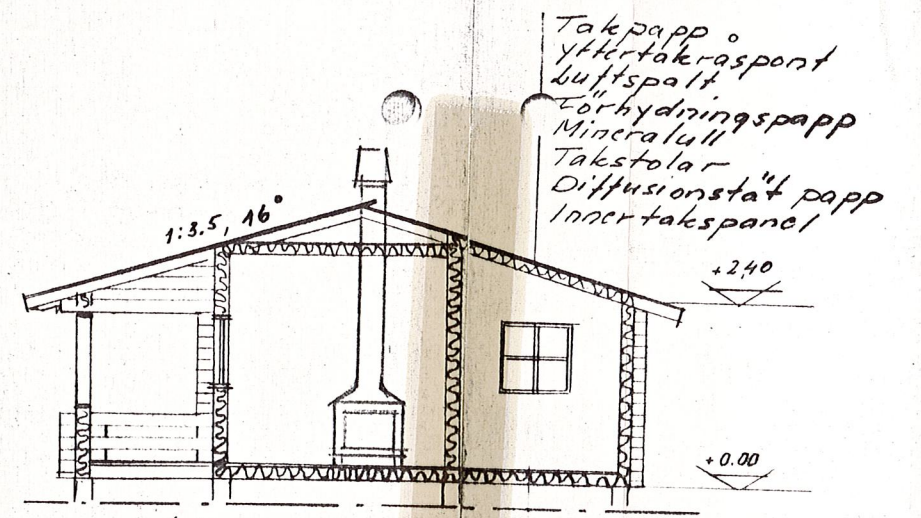 Takpapp
yttertakråspont
Luftspalt
Förhydningspapp
Mineralull
Takstolar
Diffusionstät papp
Innertakspanel
1:3.5, 16°
+2.40
+0.00